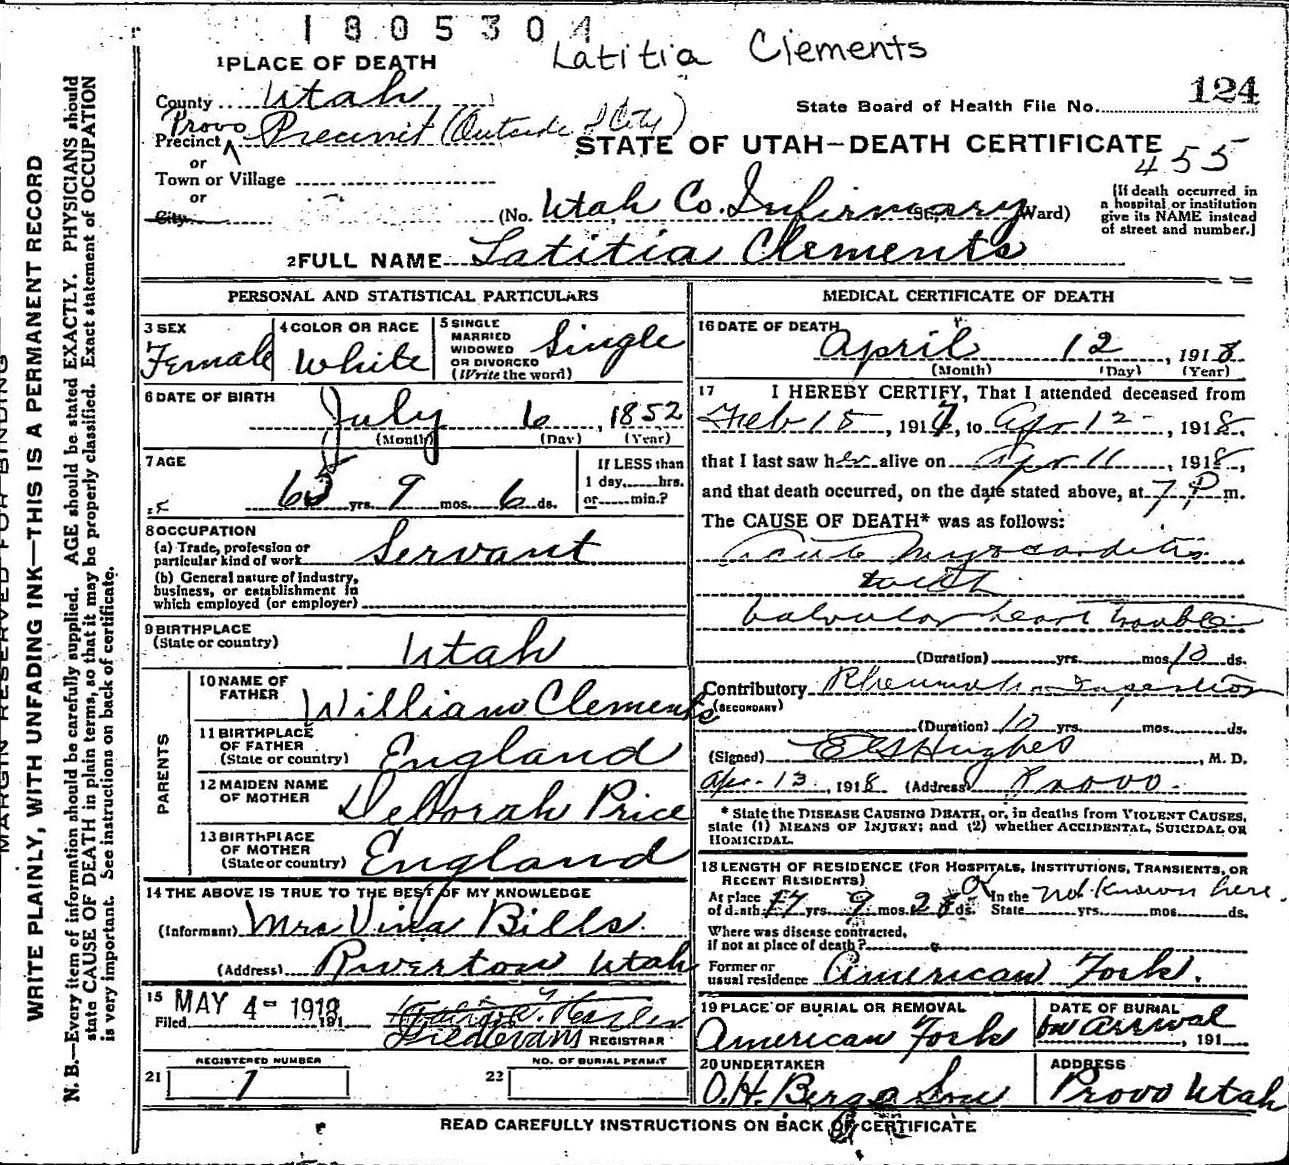 1805304
Latitia Clements
1 PLACE OF DEATH
124
County Utah
State Board of Health File No.
Provo
Precinct Precinct (Outside of City)
STATE OF UTAH—DEATH CERTIFICATE
455
or
Town or Village
or
City
(No. Utah Co. Infirmary St. Ward)
[If death occurred in
a hospital or institution
give its NAME instead
of street and number.]
2 FULL NAME Latitia Clements
PERSONAL AND STATISTICAL PARTICULARS
3 SEX
Female
4 COLOR OR RACE
White
5 SINGLE
MARRIED
WIDOWED
OR DIVORCED
(Write the word)
Single
6 DATE OF BIRTH
July 6, 1852
(Month) (Day) (Year)
7 AGE
65 yrs. 9 mos. 6 ds.
If LESS than
1 day, hrs.
or min.?
8 OCCUPATION
(a) Trade, profession or
particular kind of work Servant
(b) General nature of Industry,
business, or establishment in
which employed (or employer)
9 BIRTHPLACE
(State or country)
Utah
PARENTS
10 NAME OF
FATHER
William Clements
11 BIRTHPLACE
OF FATHER
(State or country)
England
12 MAIDEN NAME
OF MOTHER
Deborah Price
13 BIRTHPLACE
OF MOTHER
(State or country)
England
14 THE ABOVE IS TRUE TO THE BEST OF MY KNOWLEDGE
(Informant) Mrs Vina Bills.
(Address) Riverton Utah
15
Filed MAY 4- 1918 191
REGISTRAR
REGISTERED NUMBER
21 7
NO. OF BURIAL PERMIT
22
MEDICAL CERTIFICATE OF DEATH
16 DATE OF DEATH
April 12, 1918
(Month) (Day) (Year)
17 I HEREBY CERTIFY, That I attended deceased from
Feb 15, 1917, to Apr 12, 1918,
that I last saw her alive on Apr 11, 1918,
and that death occurred, on the date stated above, at 7 P m.
The CAUSE OF DEATH* was as follows:
Acute Myocarditis
with
Valvular heart trouble
(Duration) yrs. mos. 10 ds.
Contributory Rheumatism
(SECONDARY)
(Duration) 10 yrs. mos. ds.
(Signed) Hughes, M. D.
Apr. 13, 1918 (Address) Provo.
* State the DISEASE CAUSING DEATH, or, in deaths from VIOLENT CAUSES,
state (1) MEANS OF INJURY; and (2) whether ACCIDENTAL, SUICIDAL OR
HOMICIDAL.
18 LENGTH OF RESIDENCE (FOR HOSPITALS, INSTITUTIONS, TRANSIENTS, OR
RECENT RESIDENTS)
At place
of death yrs. 9 mos. ds.
In the
State yrs. mos. ds.
Not Known here.
Where was disease contracted,
if not at place of death?
Former or
usual residence American Fork.
19 PLACE OF BURIAL OR REMOVAL
American Fork
DATE OF BURIAL
on arrival, 191
20 UNDERTAKER
O.H. Berg & Sons
ADDRESS
Provo Utah
READ CAREFULLY INSTRUCTIONS ON BACK OF CERTIFICATE
MARGIN RESERVED FOR BINDING
WRITE PLAINLY, WITH UNFADING INK—THIS IS A PERMANENT RECORD
N. B.—Every item of information should be carefully supplied. AGE should be stated EXACTLY. PHYSICIANS should
state CAUSE OF DEATH in plain terms, so that it may be properly classified. Exact statement of OCCUPATION
is very important. See instructions on back of certificate.